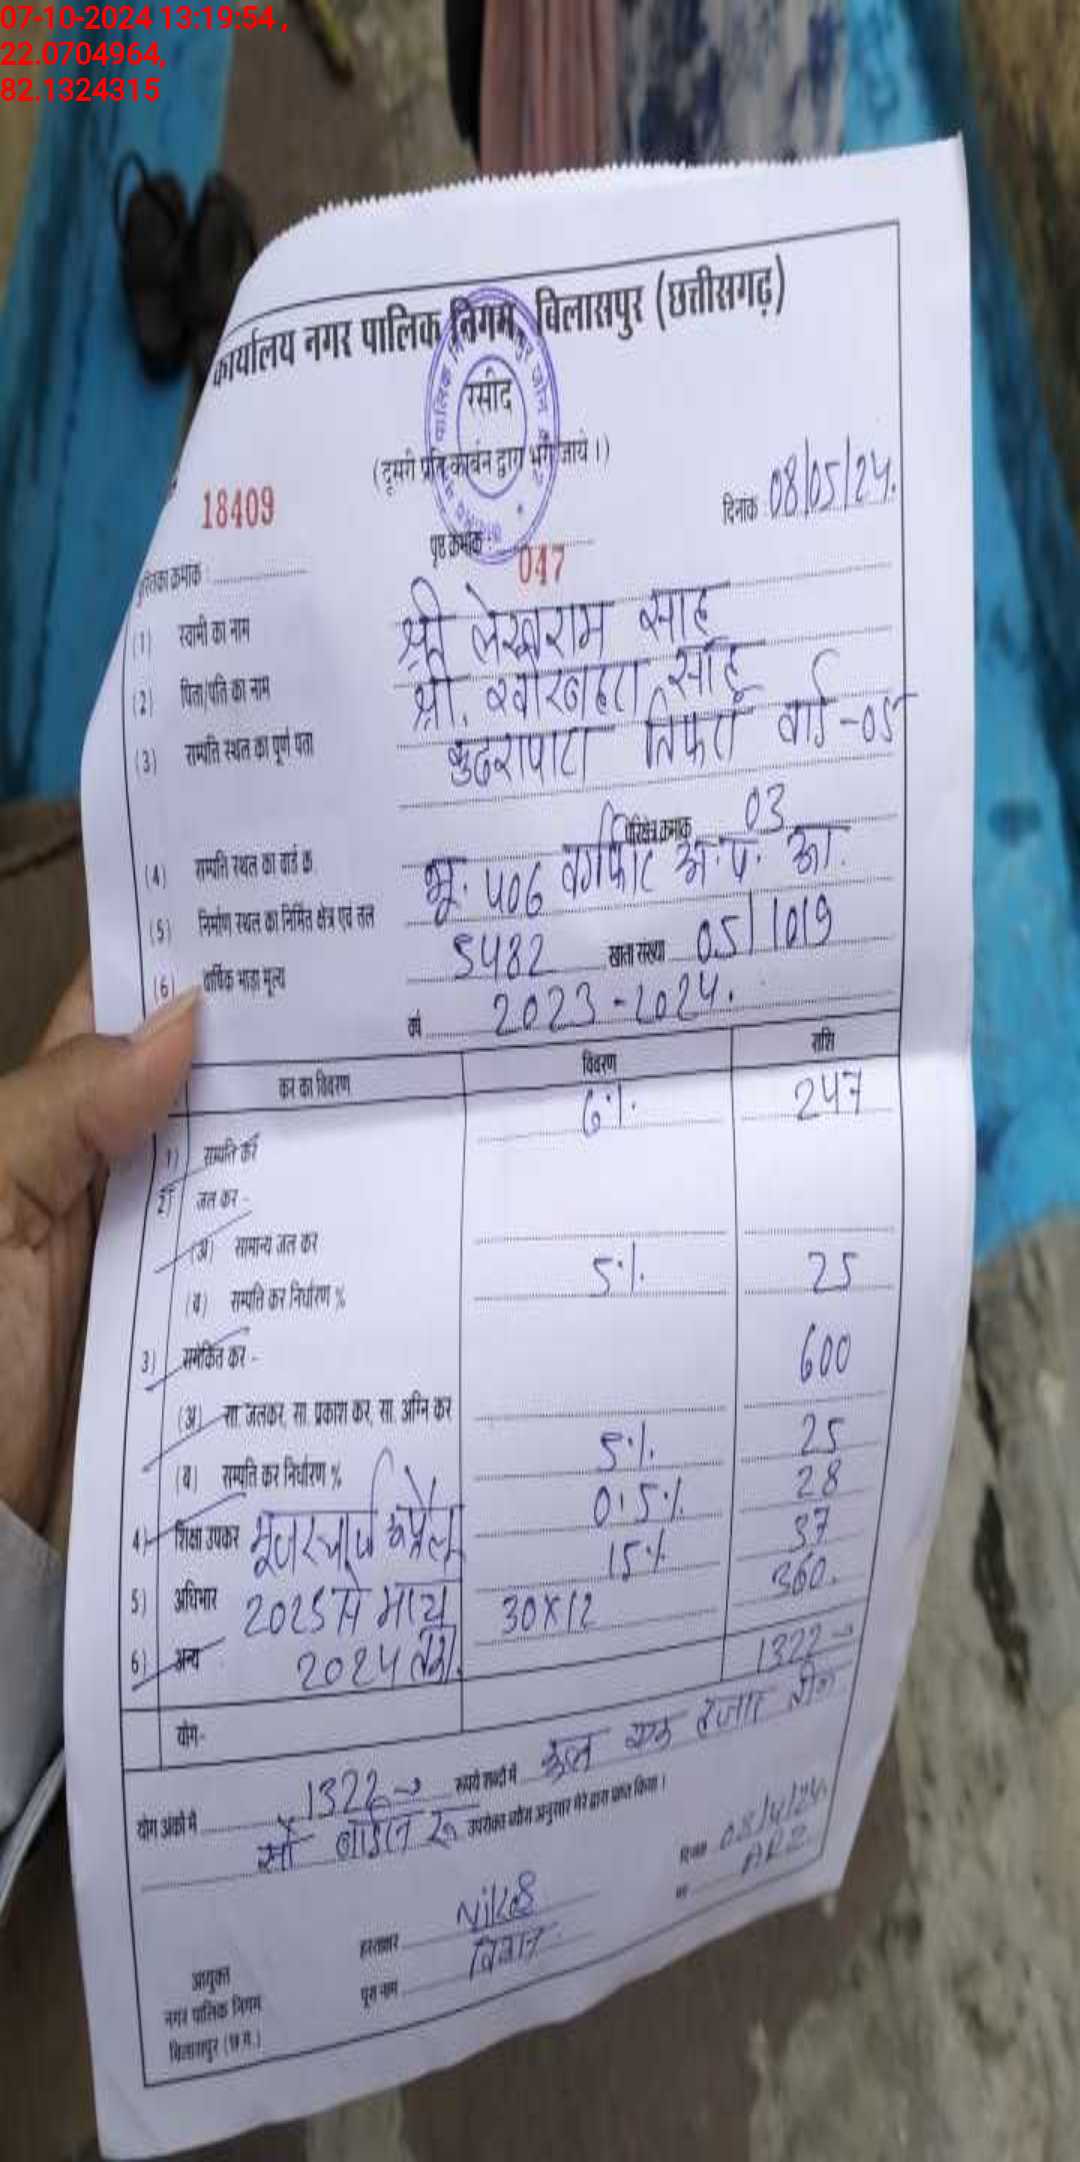 07-10-2024 13:19:54 ,
22.0704964,
82.1324315
कार्यालय नगर पालिक निगम, बिलासपुर (छत्तीसगढ़)
रसीद
(दूसरी प्रति कार्बन द्वारा भरी जाये।)
18409
दिनांक 08/05/24.
पुस्तिका क्रमांक : पृष्ठ क्रमांक : 047
(1) स्वामी का नाम श्री लेखराम साहू
(2) पिता/पति का नाम श्री. साहू
(3) सम्पत्ति स्थल का पूर्ण पता तिफरा वार्ड-05
(4) सम्पत्ति स्थल का वार्ड क्र. परिक्षेत्र क्रमांक 03
(5) निर्माण स्थल का निर्मित क्षेत्र एवं तल भू. 506 वर्गफीट अ.प. आ.
(6) वार्षिक भाड़ा मूल्य 5482 खाता संख्या 05/1019
वर्ष 2023-2024.
कर का विवरण विवरण राशि
1) सम्पत्ति कर 6% 247
2) जल कर -
(अ) सामान्य जल कर
(ब) सम्पत्ति कर निर्धारण % 5% 25
3) समेकित कर - 600
(अ) सा. जलकर, सा. प्रकाश कर, सा. अग्नि कर
(ब) सम्पत्ति कर निर्धारण % 5% 25
4) शिक्षा उपकर यूजर चार्ज अप्रैल 0.5% 28
5) अधिभार 2023 से मार्च 15% 37
6) अन्य 2024 तक 30x12 360.
योग- 1322
योग अंकों में 1322 रूपये शब्दों में कुल एक हजार तीन
सौ बाईस रू उपरोक्त ब्योरा अनुसार मेरे द्वारा प्राप्त किया।
दिनांक
हस्ताक्षर पद
आयुक्त
नगर पालिक निगम पूरा नाम
बिलासपुर (छ.ग.)